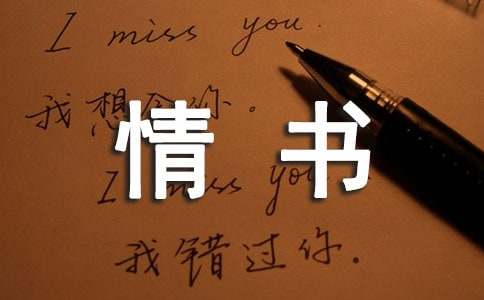 I miss you.
我想念你。
情书
I miss you.
我错过你.